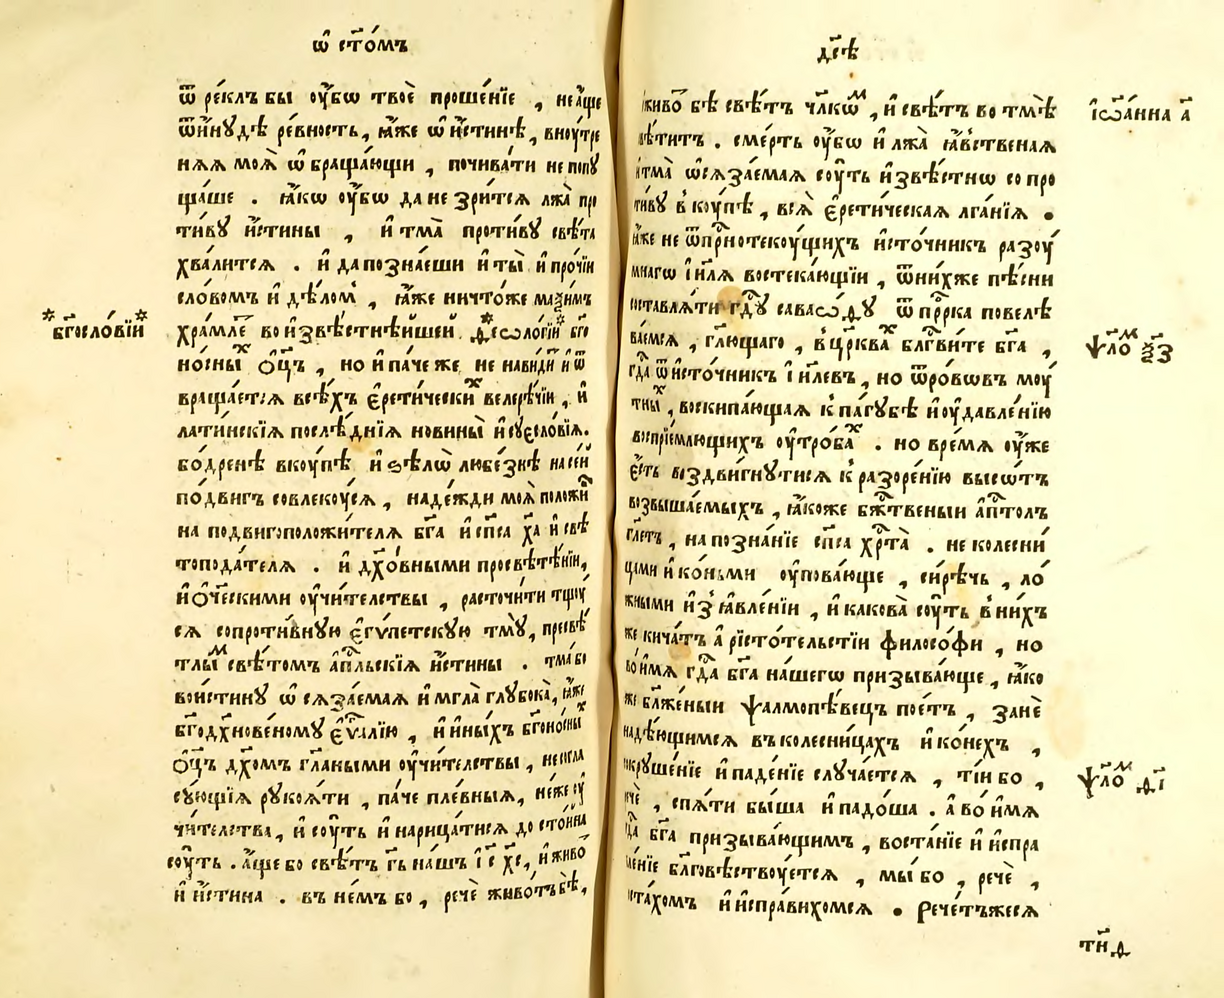 ѿ ст҃о́мъ
ѿ ре́клъ бы ᲂу҆́бѡ твоѐ проше́нїе , не а҆́ще
ѿи́нꙋдѣ ре́вность, ꙗ҆́же ѿ и҆́стинѣ, внᲂу́тре
нѧѧ моѧ̀ ѡ҆браща́ющи , почива́ти не попꙋ
ща́ше . ꙗ҆́кѡ ᲂу҆́бѡ да не зри́тсѧ лжа̀ про
ти́вꙋ и҆́стины , и҆ тма̀ проти́вꙋ свѣ́та
хва́литсѧ . и҆ да позна́еши и҆ ты̀ и҆ про́чїи
сло́вомъ и҆ дѣ́ломъ , ꙗ҆́же ничто́же маѯи́мъ
*бг҃осло́вїи*
хра́млѐ во и҆звѣ́стнѣйшей *ѳеѡло́гїи* бг҃о
но́сныⷯ ѻ҆ц҃ъ , но и҆ па́че же не нави́ди и҆ ѿ
враща́етсѧ всѣ́хъ є҆рети́ческиⷯ велерѣ́чїи , и҆
лати́нскїѧ послѣ́днїѧ новины̀ и҆ сꙋесло́вїѧ.
бо́дренѣ вкꙋ́пѣ и҆ ѕѣлѡ̀ любе́знѣ на се́й
по́двигъ совлекᲂу́сѧ , наде́жди моѧ̀ положи́
на подвигоположи́телѧ бг҃а и҆ сп҃са хр҃а и҆ свѣ
топода́телѧ . и҆ дх҃о́вными просвѣще́нїи,
и҆ ѻ҆́ч҃ескими ᲂу҆чи́телствы , расточи́ти тщᲂу́
сѧ сопроти́внꙋю є҆гѵ́петскꙋю тмꙋ̀, пресвѣ́
тлыⷨ свѣ́томъ а҆пⷭ҇льскїѧ и҆́стины . тма́ бо
вои́стинꙋ ѡ҆сѧза́емаѧ и҆ мгла̀ глꙋбока̀, ꙗ҆́же
бг҃одх҃нове́номꙋ є҆ѵⷢ҇лїю , и҆ и҆́ныхъ бг҃оно́сныⷯ
ѻ҆ц҃ъ дх҃омъ гл҃аными ᲂу҆чи́телствы , несогла
сꙋющїѧ рꙋкоѧ́ти , па́че пле́вныѧ, не́же ᲂу҆
чи́телства, и҆ сᲂу́ть и҆ нарица́тисѧ досто́йна
сᲂу́ть . а҆́ще бо свѣ́тъ гь҃ на́шъ і҆с҃ хс҃, и҆ живо́ⷮ
и҆ и҆́стина . въ не́мъ бо , речѐ живо́тъ бѣ̀,
дс҃ѣ
живоⷮ бѣ̀ свѣ́тъ чл҃кѡⷨ , и҆ свѣ́тъ во тмѣ̀
і҆ѡа́нна а҃
свѣ́титъ . сме́рть ᲂу҆́бѡ и҆ лжа̀ ꙗ҆́вственаѧ
и҆ тма̀ ѡ҆сѧза́емаѧ сᲂу́ть и҆звѣ́стнѡ со про
ти́вꙋ вкᲂу́пѣ , всѧ̀ є҆рети́ческаѧ лга́нїѧ .
ꙗ҆́же не ѿ прⷭ҇нотекᲂу́щихъ и҆сто́чникъ разᲂу́
мнагѡ і҆и҃лѧ востека́ющїи , ѿ ни́хже пѣ́сни
составлѧ́ти гдⷭ҇ꙋ саваѡ́ѳꙋ ѿ прⷪ҇рка повелѣ
ва́емсѧ , гл҃ющаго , в це́рк҃ваⷯ бл҃гви́те бг҃а ,
ѱло́ⷨ ѯ҃з
гдⷭ҇а ѿ и҆сто́чникъ і҆и҃левъ, но ѿ ро́вѡвъ мᲂу́
тныⷯ , воскипа́ющаѧ к па́гꙋбѣ и҆ ᲂу҆давле́нїю
воспрїе́млющихъ ᲂу҆тро́баⷯ . но вре́мѧ ᲂу҆́же
є҆́сть воздви́гнꙋтисѧ к разоре́нїю высѡ́тъ
возвыша́емыхъ , ꙗ҆́коже бж҃твеныи а҆пⷭ҇толъ
гл҃етъ , на позна́нїе сп҃са хрⷭ҇та̀ . не колесни́
цами и҆ ко́ньми ᲂу҆пова́юще , си́рѣчь , ло́
жными и҆з̾ꙗвле́нїи , и҆ какова̀ сᲂу́ть в ни́хъ
же кича́тъ арїстоте́льстїи филосо́фи , но
во и҆́мѧ гдⷭ҇а бг҃а на́шегѡ призыва́юще , ꙗ҆́ко
же бл҃же́ныи ѱалмопѣ́вецъ пое́тъ , занѐ
надѣ́ющимсѧ въ колесни́цахъ и҆ ко́нехъ ,
сокрꙋше́нїе и҆ паде́нїе слꙋча́етсѧ , ті́и бо ,
ѱло́ⷨ ѳ҃і
речѐ , спѧ́ти бы́ша и҆ падо́ша . а҆ во и҆́мѧ
гдⷭ҇а бг҃а призыва́ющимъ , воста́нїе и҆ и҆спра
вле́нїе бл҃говѣствᲂу́етсѧ , мы́ бо , речѐ ,
воста́хомъ и҆ и҆спра́вихомсѧ . Рече́тъжесѧ
тн҃ѳ